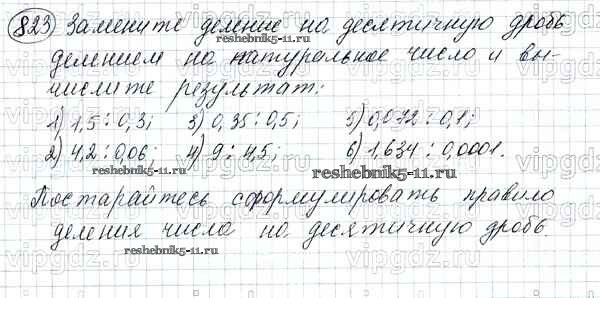 823) Замените деление на десятичную дробь
reshebnik5-11.ru
делением на натуральное число и вы-
числите результат:
1) 1,5 : 0,3; 3) 0,35 : 0,5; 5) 0,072 : 0,1;
2) 4,2 : 0,06; 4) 9 : 4,5; 6) 1,634 : 0,0001.
reshebnik5-11.ru
Постарайтесь сформулировать правило
деления числа на десятичную дробь.
reshebnik5-11.ru
vipgdz.ru